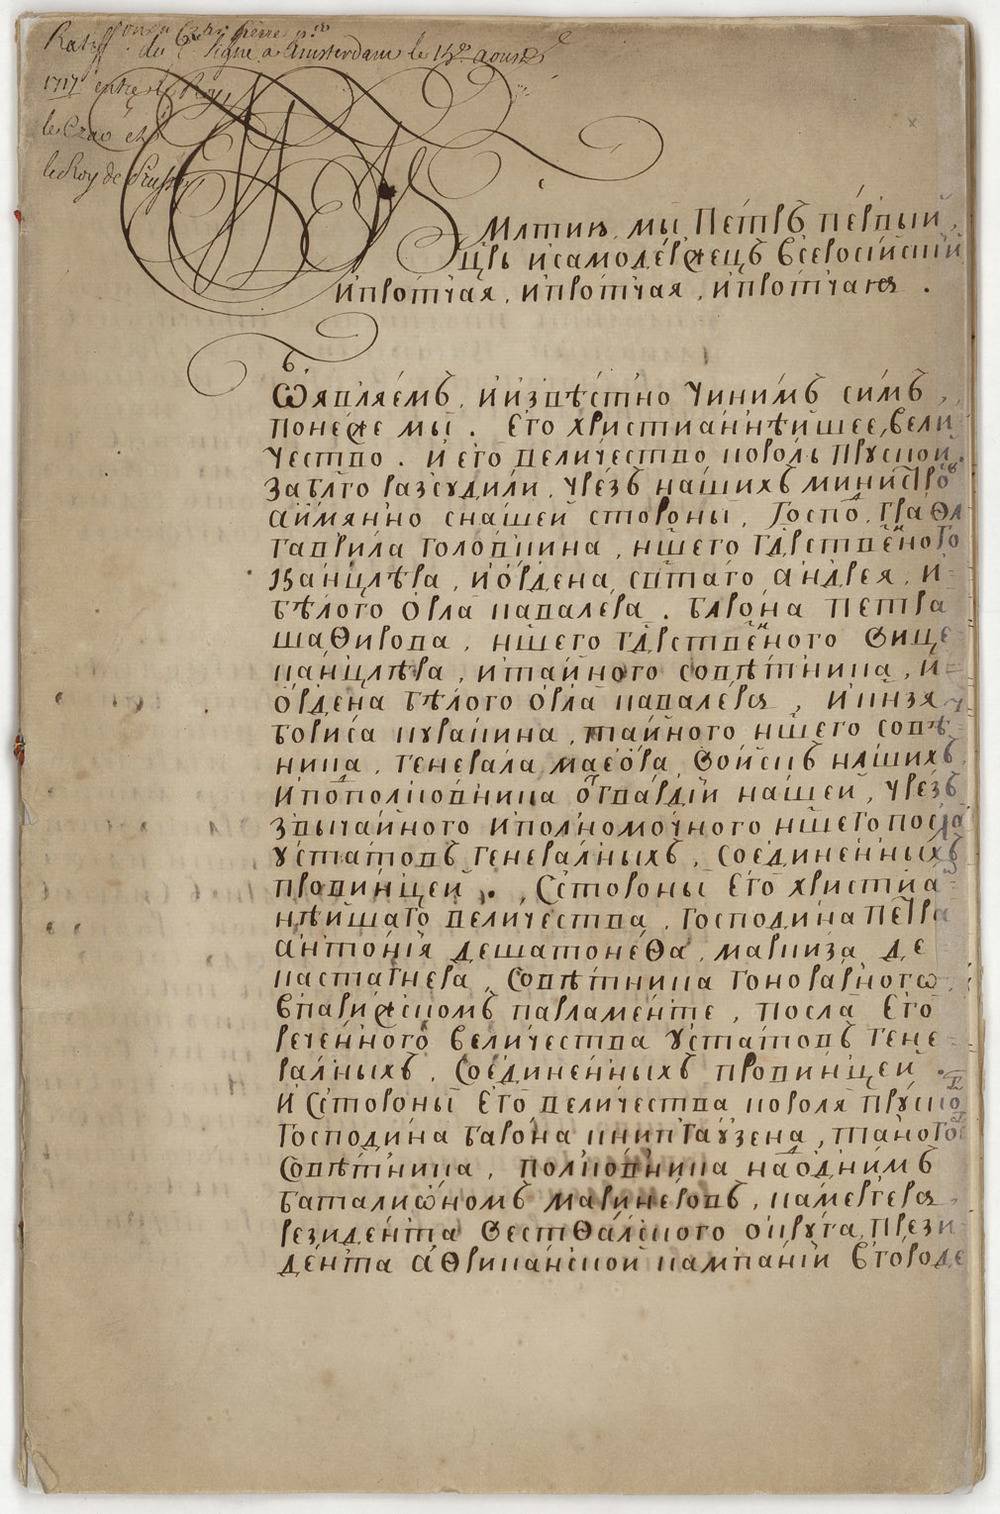 Ratiffon du Czar Pierre 1er
du signé a Amsterdam le 15e aoust
1717 entre le Roy
le Czar et
le Roy de Prusse
Млтию мы Пéтръ пéрвый,
црь исамодéржецъ всеросíйскïй
ипротчая, ипрóтчая, ипрóтчая.
Ѡъявляемъ, иизвѣстно чинимъ симъ,
понеже мы. Его христиáннѣйшее, вели
чество. и его величество король пруской.
Заблго разсудили, чрезъ нашихъ министровъ
аимянно снашей стороны, Госпо. графа
гаврила головкина, ншего гдрственого
Канцлѣра, иóрдена свтаго андрея, и
бѣлого орла кавалера. барóна петра
шаѳирова, ншего гдрственого вице
канцлѣра, итайного совѣтника, и
óрдена бѣлого орла кавалера, икнзя
бориса куракина, тайного ншего совѣ
ника, генерала маеóра, войскъ нашихъ
иполполковника отгвардïи нашей, чрезъ
звычайного иполномочного ншего посла
устатовъ генералныхъ, соединенныхъ
провинцей. Сстороны его христиа
нѣйшаго величества, господина петра
антонïя дешатонеѳа, маркиза де
кастагнера, совѣтника гоноралногѡ
впарижскомъ парламенте, посла его
реченного величества устатовъ гене
ралныхъ, соединенныхъ провинцей.
И Сстороны его величества короля пруско
господина барона книпгаузена, такого
совѣтника, полковника надоднимъ
баталиѡномъ маринеровъ, камергера
резидента вестѳалского округа, прези
дента аѳриканской кампанïи вгороде